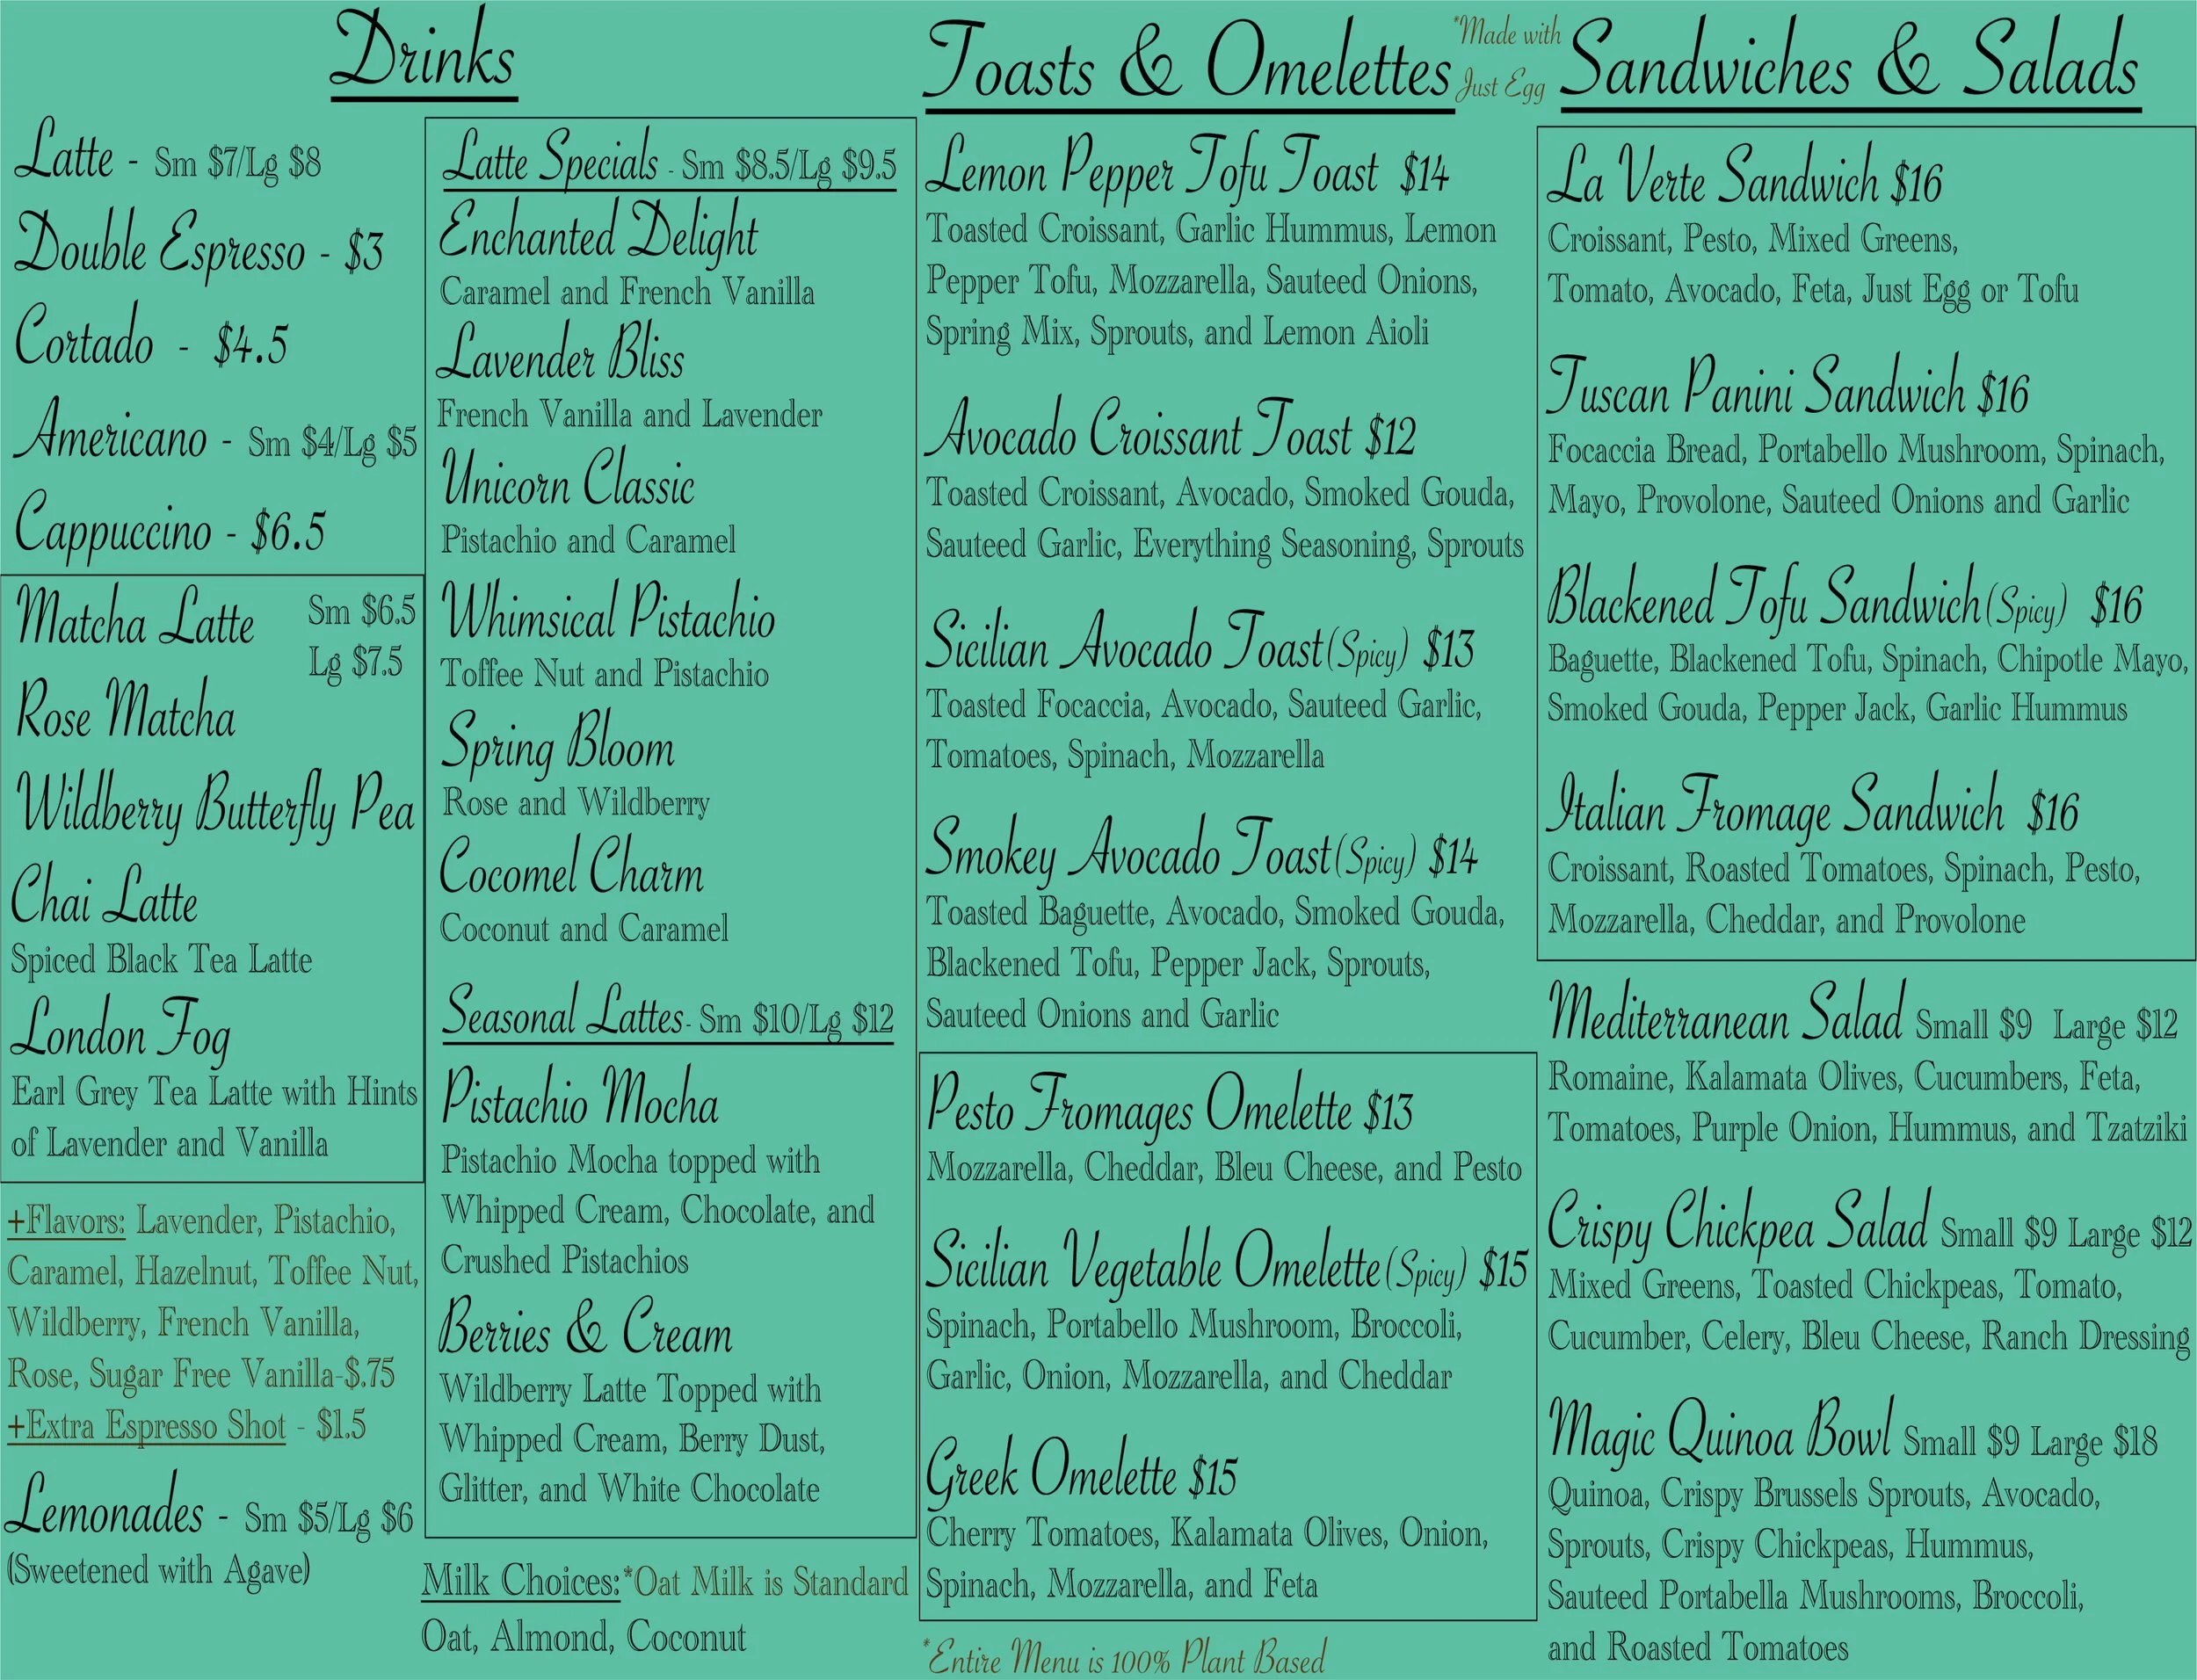 Drinks
Latte - Sm $7/Lg $8
Double Espresso - $3
Cortado - $4.5
Americano - Sm $4/Lg $5
Cappuccino - $6.5
Matcha Latte Sm $6.5
Lg $7.5
Rose Matcha
Wildberry Butterfly Pea
Chai Latte
Spiced Black Tea Latte
London Fog
Earl Grey Tea Latte with Hints
of Lavender and Vanilla
+Flavors: Lavender, Pistachio,
Caramel, Hazelnut, Toffee Nut,
Wildberry, French Vanilla,
Rose, Sugar Free Vanilla-$.75
+Extra Espresso Shot - $1.5
Lemonades - Sm $5/Lg $6
(Sweetened with Agave)
Latte Specials - Sm $8.5/Lg $9.5
Enchanted Delight
Caramel and French Vanilla
Lavender Bliss
French Vanilla and Lavender
Unicorn Classic
Pistachio and Caramel
Whimsical Pistachio
Toffee Nut and Pistachio
Spring Bloom
Rose and Wildberry
Cocomel Charm
Coconut and Caramel
Seasonal Lattes- Sm $10/Lg $12
Pistachio Mocha
Pistachio Mocha topped with
Whipped Cream, Chocolate, and
Crushed Pistachios
Berries & Cream
Wildberry Latte Topped with
Whipped Cream, Berry Dust,
Glitter, and White Chocolate
Milk Choices:*Oat Milk is Standard
Oat, Almond, Coconut
Toasts & Omelettes
*Made with
Just Egg
Lemon Pepper Tofu Toast $14
Toasted Croissant, Garlic Hummus, Lemon
Pepper Tofu, Mozzarella, Sauteed Onions,
Spring Mix, Sprouts, and Lemon Aioli
Avocado Croissant Toast $12
Toasted Croissant, Avocado, Smoked Gouda,
Sauteed Garlic, Everything Seasoning, Sprouts
Sicilian Avocado Toast(Spicy) $13
Toasted Focaccia, Avocado, Sauteed Garlic,
Tomatoes, Spinach, Mozzarella
Smokey Avocado Toast(Spicy) $14
Toasted Baguette, Avocado, Smoked Gouda,
Blackened Tofu, Pepper Jack, Sprouts,
Sauteed Onions and Garlic
Pesto Fromages Omelette $13
Mozzarella, Cheddar, Bleu Cheese, and Pesto
Sicilian Vegetable Omelette(Spicy) $15
Spinach, Portabello Mushroom, Broccoli,
Garlic, Onion, Mozzarella, and Cheddar
Greek Omelette $15
Cherry Tomatoes, Kalamata Olives, Onion,
Spinach, Mozzarella, and Feta
*Entire Menu is 100% Plant Based
Sandwiches & Salads
La Verte Sandwich $16
Croissant, Pesto, Mixed Greens,
Tomato, Avocado, Feta, Just Egg or Tofu
Tuscan Panini Sandwich $16
Focaccia Bread, Portabello Mushroom, Spinach,
Mayo, Provolone, Sauteed Onions and Garlic
Blackened Tofu Sandwich(Spicy) $16
Baguette, Blackened Tofu, Spinach, Chipotle Mayo,
Smoked Gouda, Pepper Jack, Garlic Hummus
Italian Fromage Sandwich $16
Croissant, Roasted Tomatoes, Spinach, Pesto,
Mozzarella, Cheddar, and Provolone
Mediterranean Salad Small $9 Large $12
Romaine, Kalamata Olives, Cucumbers, Feta,
Tomatoes, Purple Onion, Hummus, and Tzatziki
Crispy Chickpea Salad Small $9 Large $12
Mixed Greens, Toasted Chickpeas, Tomato,
Cucumber, Celery, Bleu Cheese, Ranch Dressing
Magic Quinoa Bowl Small $9 Large $18
Quinoa, Crispy Brussels Sprouts, Avocado,
Sprouts, Crispy Chickpeas, Hummus,
Sauteed Portabella Mushrooms, Broccoli,
and Roasted Tomatoes